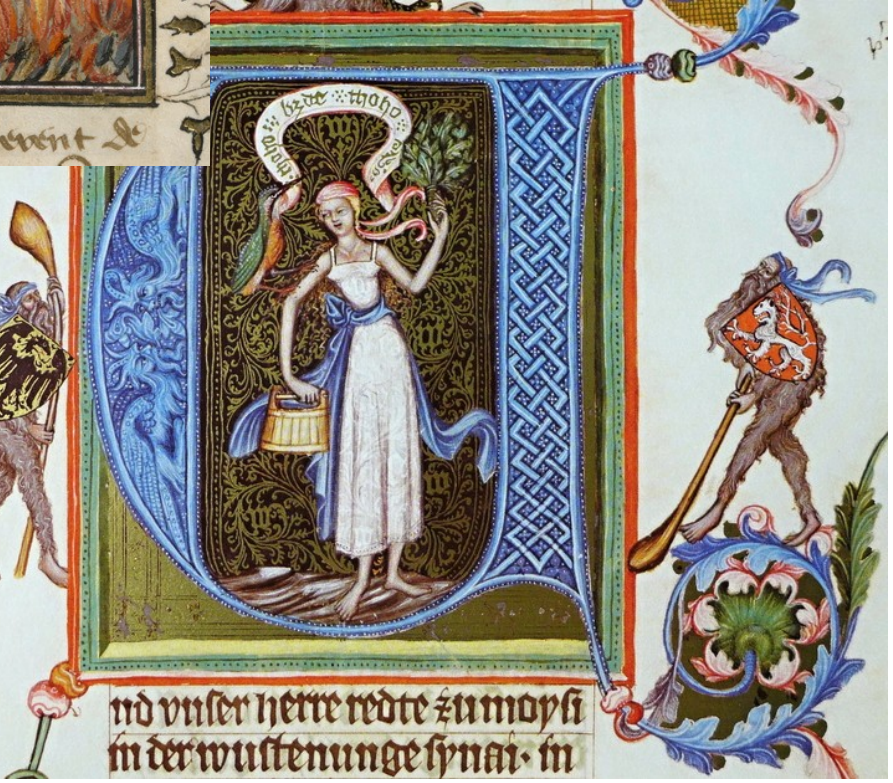 event de
toho bzde toho
nd vnser herre redte zu moysi
in der wustenunge synai· in